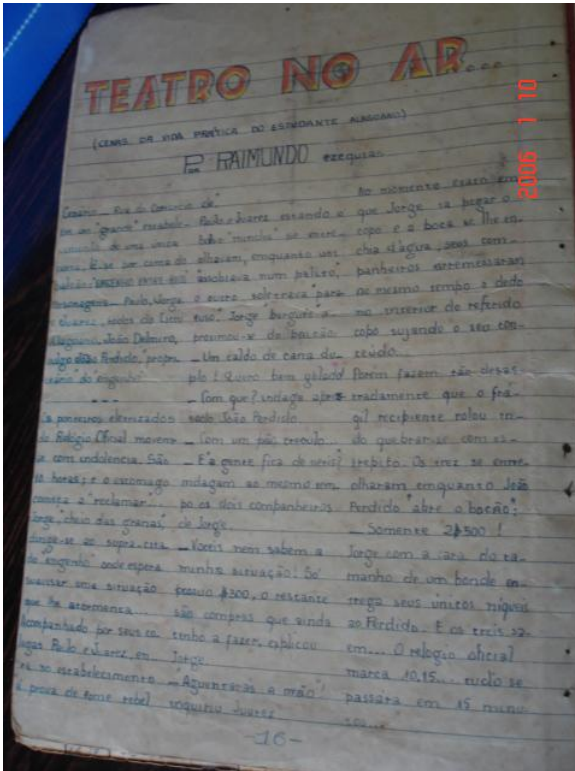 TEATRO NO AR...
(CENAS DA VIDA PRÁTICA DO ESTUDANTE ALAGOANO)
Por RAIMUNDO ezequias
Cenário _ Rua do Comercio de
em um "grande" estabele-
cimento de uma unica
porta. E'-se por cima do
Personagens _ Paulo, Jorge
e Juarez, todos do Liceu
Alagoano, João Delmiro,
vulgo João Perdido, propri-
etário do "engenho"
_ _ _
Os ponteiros eletrizados
do Relógio Oficial movem-
se com indolencia. São
10 horas; e o estomago
começa a "reclamar"...
Jorge, "cheio das granas,"
dirige-se ao supra-cita-
do "engenho" onde espera
suavisar uma situação
que lhe atormenta...
Acompanhado por seus co-
legas Paulo e Juarez, en-
tra no estabelecimento
á prova de fome rebel
Paulo e Juarez estando a
olhavam, enquanto um
assobiava num palito,
o outro soletrava "para
Jorge "burguês" a-
proximou-se do balcão
_ Um caldo de cana du-
plo! Quero bem gelado!
_ Com que? indaga apres-
sado João Perdido
_ Com um pão creoulo.
_ E a gente fica de neris?
indagam ao mesmo tem-
po os dois companheiros
de Jorge.
_ Vocês nem sabem a
minha situação! Só
possuo $500, o restante
são compras que ainda
tenho a fazer, explicou
Jorge.
_ Aguentação a mão!
inquiriu Juarez
No momento exato em
que Jorge ia pegar o
copo e a boca se lhe en-
chia d'agua, seus com-
panheiros arremessaram
ao mesmo tempo o dedo
no interior do referido
copo sujando o seu con-
teúdo...
Porém fazem tão desas-
tradamente que o frá-
gil recipiente rolou in-
do quebrar-se com es-
trepito. Os trez se entre-
olharam enquanto João
Perdido "abre o bocão":
_ Somente 2$500 !
Jorge com a cara do ta-
manho de um bonde en-
trega seus únicos niqueis
ao Perdido. E os treis sa-
em... O relogio oficial
marca 10,15... tudo se
passára em 15 minu-
-16-
2006 1 10